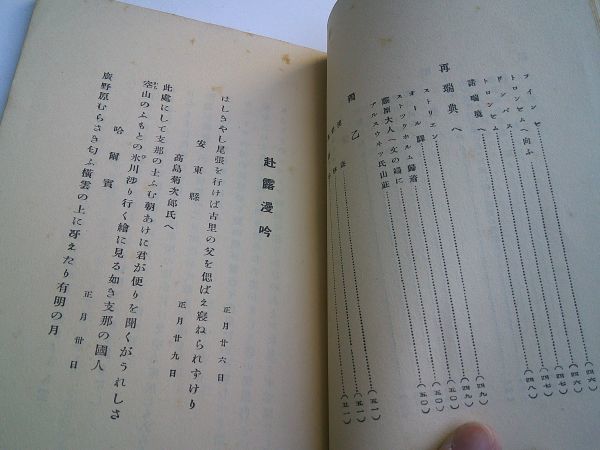 フインセ……(四六)
トロンセムへ向ふ……(四六)
ドンバス……(四七)
トロンセム……(四七)
諾瑞境へ……(四八)
再瑞典へ
ストリエン……(四九)
オール驛……(四九)
ストックホルム歸着……(五〇)
藤原大人へ文の端に……(五〇)
アルスウネツ氏山莊……(五一)
獨乙
赴露漫吟
はしきやし尾張を行けば古里の父を偲ばえ寢ねられずけり
正月廿六日
安東縣
此處にして支那の土ふむ朝あけに君が便りを聞くがうれしさ
高島菊次郎氏へ
正月廿九日
空山のふもとの氷川渉り行く繪に見る如き支那の國人
哈爾賓
正月卅日
廣野原むらさき匂ふ横雲の上に冴えたり有明の月